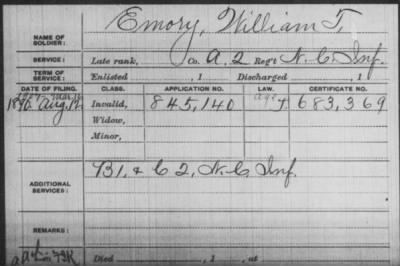 NAME OF SOLDIER: Emory, William T.
SERVICE: Late rank, Co. A, 2 Reg't N. C. Inf.
TERM OF SERVICE: Enlisted , 1 Discharged , 1
DATE OF FILING. CLASS. APPLICATION NO. LAW. CERTIFICATE NO.
1890 Aug. Invalid, 845,140 683,369
Widow,
Minor,
ADDITIONAL SERVICES: B 1, & C 2, N. C. Inf.
REMARKS:
Died , 1 , at